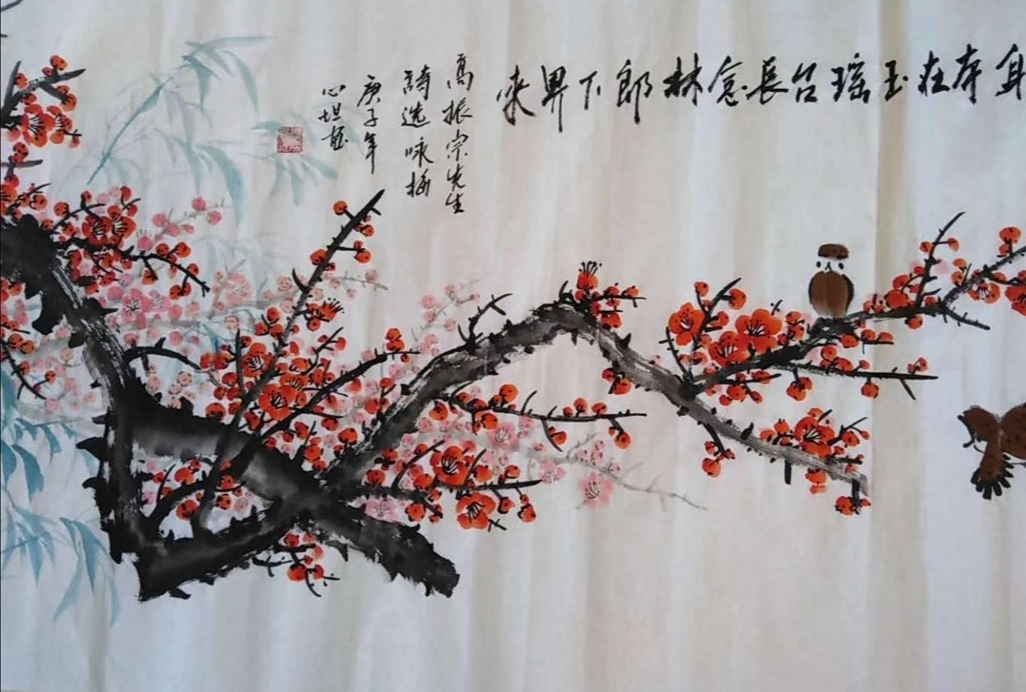 身本在玉瑶台長念林郎下界来
高振宗先生
詩选咏梅
庚子年
心坦